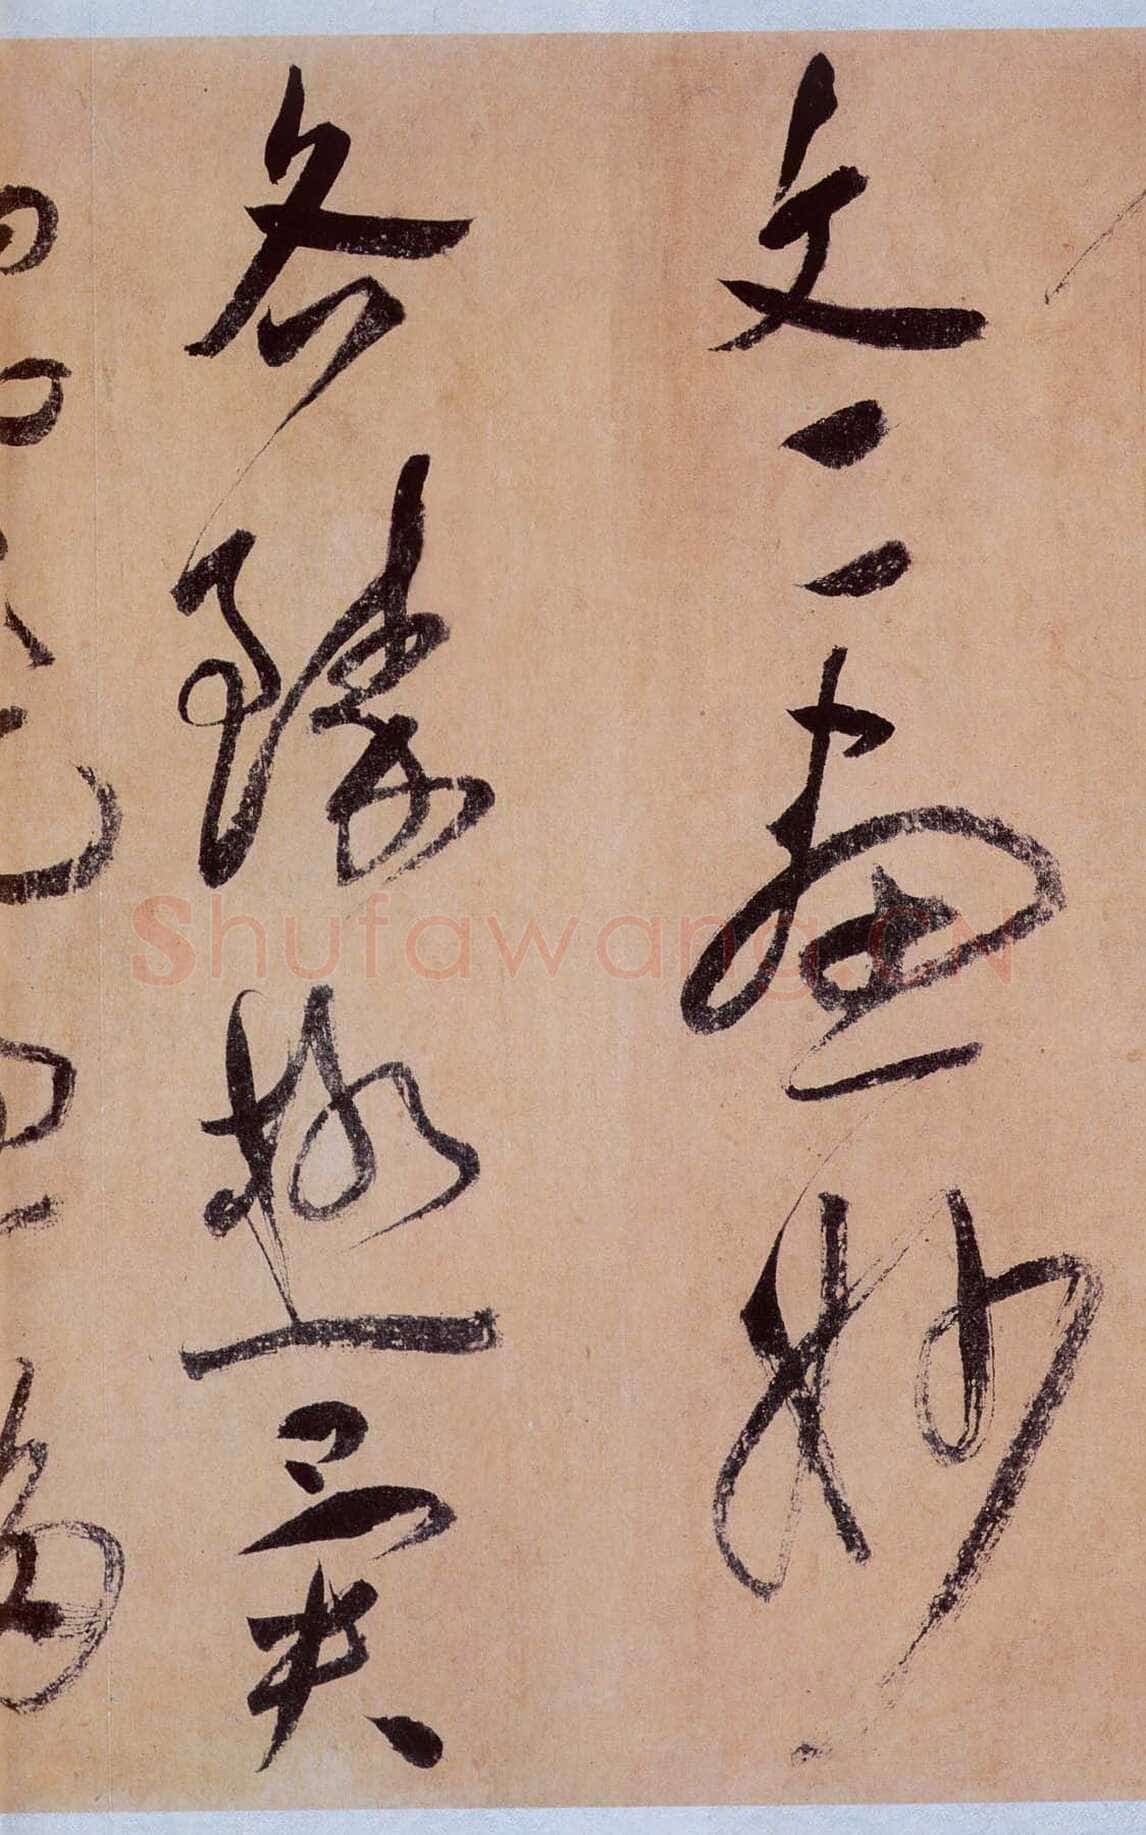 文工畫妙
各臻極異
Shufawang.CN